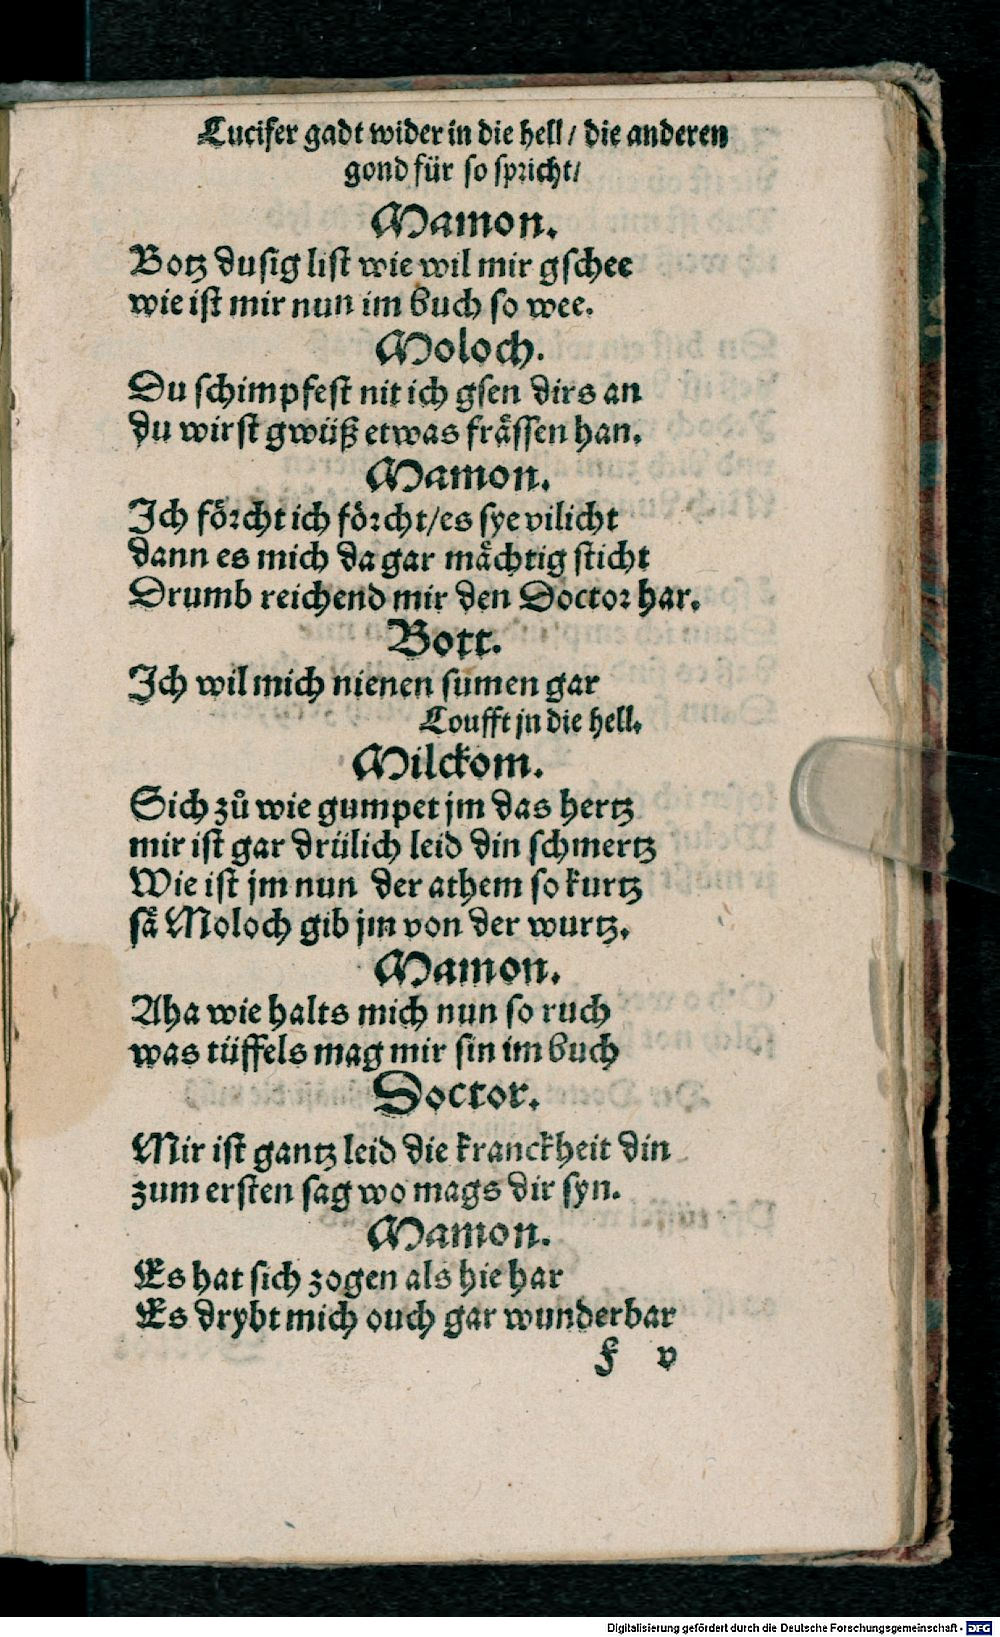 Lucifer gadt wider in die hell / die anderen
gond für so spricht /
Mamon.
Botz dusig list wie wil mir gschee
wie ist mir nun im buch so wee.
Moloch.
Du schimpfest nit ich gsen dirs an
du wirst gwüß etwas frässen han.
Mamon.
Ich förcht ich förcht / es sye vilicht
dann es mich da gar mächtig sticht
Drumb reichend mir den Doctor har.
Bott.
Ich wil mich nienen sumen gar
Loufft jn die hell.
Milckom.
Sich zů wie gumpet jm das hertz
mir ist gar drülich leid din schmertz
Wie ist jm nun der athem so kurtz
sä Moloch gib jm von der wurtz.
Mamon.
Aha wie halts mich nun so ruch
was tüffels mag mir sin im buch
Doctor.
Mir ist gantz leid die kranckheit din
zum ersten sag wo mags dir syn.
Mamon.
Es hat sich zogen als hie har
Es drybt mich ouch gar wunderbar
f v
Digitalisierung gefördert durch die Deutsche Forschungsgemeinschaft - DFG